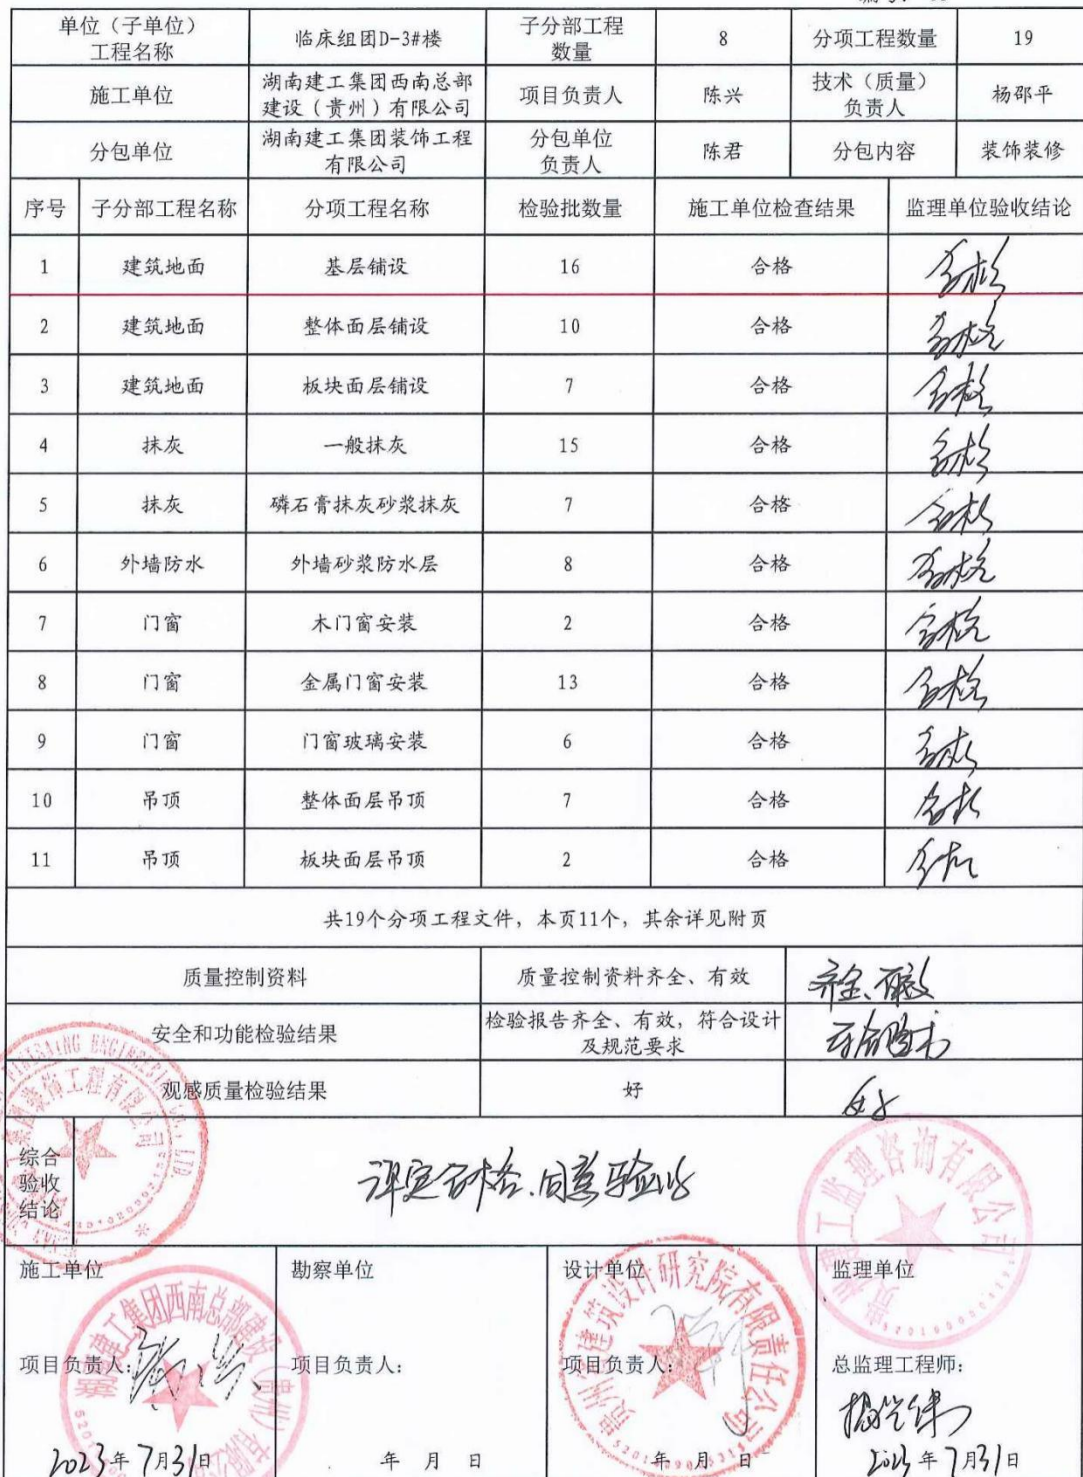 单位（子单位）
工程名称
临床组团D-3#楼
子分部工程
数量
8
分项工程数量
19
施工单位
湖南建工集团西南总部
建设（贵州）有限公司
项目负责人
陈兴
技术（质量）
负责人
杨邵平
分包单位
湖南建工集团装饰工程
有限公司
分包单位
负责人
陈君
分包内容
装饰装修
序号 子分部工程名称 分项工程名称 检验批数量 施工单位检查结果 监理单位验收结论
1 建筑地面 基层铺设 16 合格 合格
2 建筑地面 整体面层铺设 10 合格 合格
3 建筑地面 板块面层铺设 7 合格 合格
4 抹灰 一般抹灰 15 合格 合格
5 抹灰 磷石膏抹灰砂浆抹灰 7 合格 合格
6 外墙防水 外墙砂浆防水层 8 合格 合格
7 门窗 木门窗安装 2 合格 合格
8 门窗 金属门窗安装 13 合格 合格
9 门窗 门窗玻璃安装 6 合格 合格
10 吊顶 整体面层吊顶 7 合格 合格
11 吊顶 板块面层吊顶 2 合格 合格
共19个分项工程文件，本页11个，其余详见附页
质量控制资料 质量控制资料齐全、有效 齐全、有效
安全和功能检验结果
检验报告齐全、有效，符合设计
及规范要求
符合要求
观感质量检验结果 好 好
综合
验收
结论
评定合格、同意验收
施工单位 勘察单位 设计单位 监理单位
项目负责人： 项目负责人： 项目负责人： 总监理工程师：
2023年7月31日 年 月 日 年 月 日 2023年7月31日